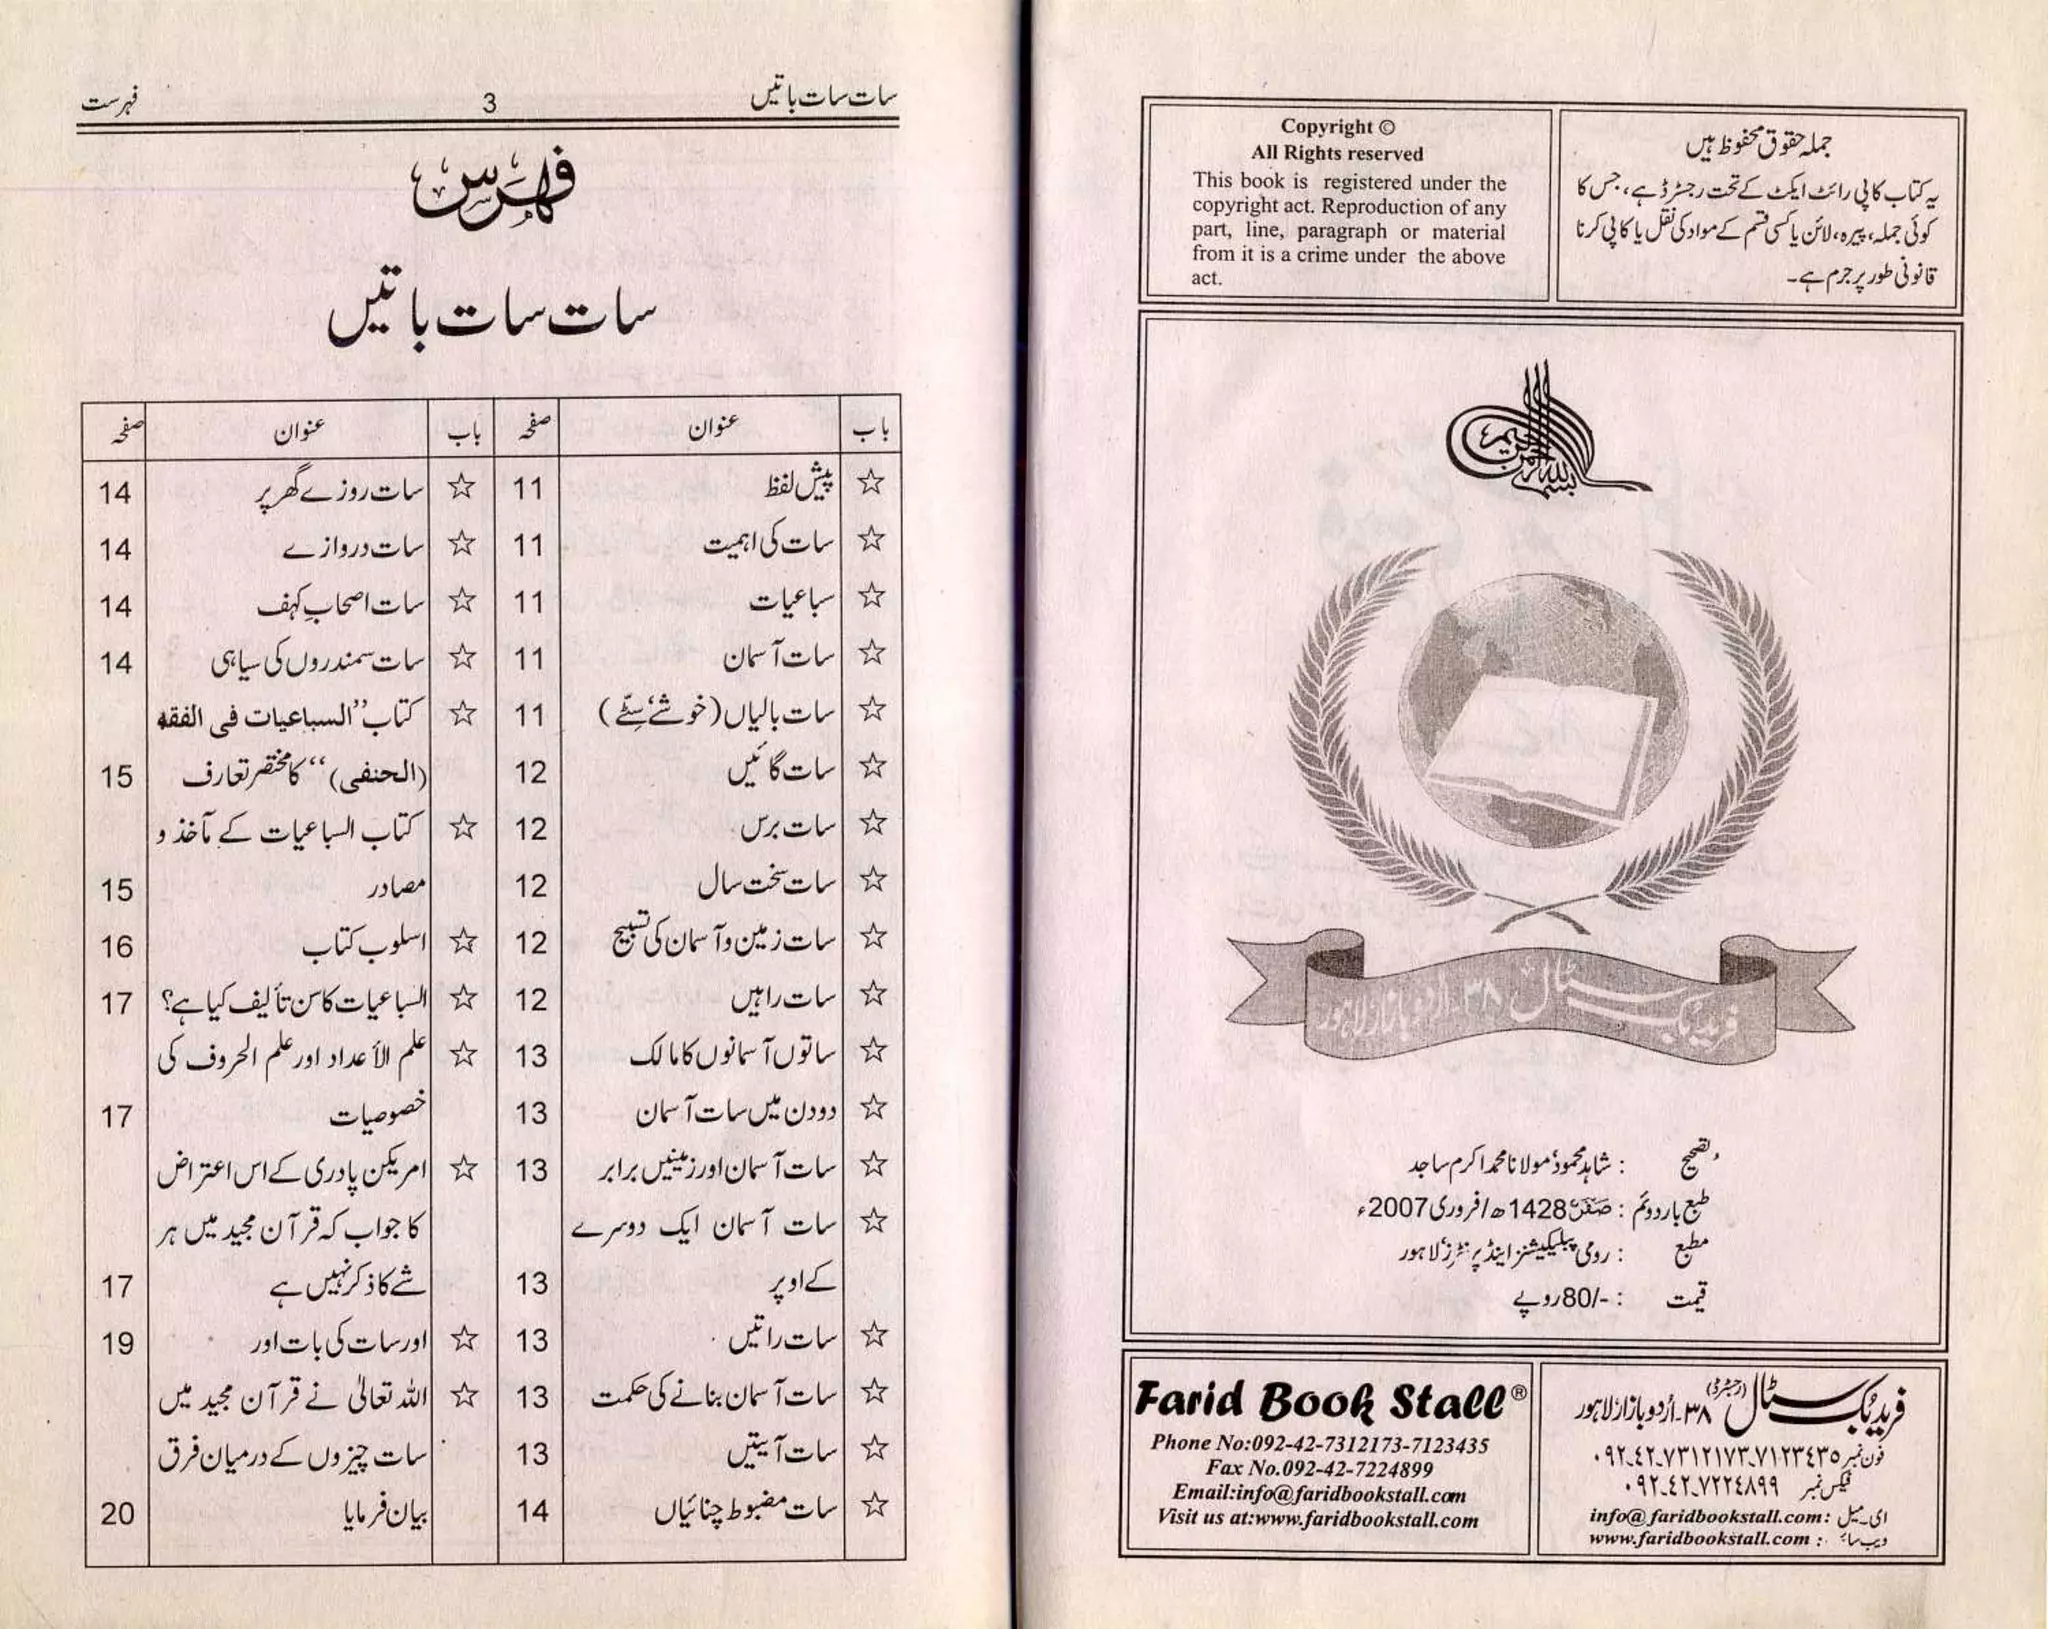 Copyright ©
All Rights reserved
This book is registered under the
copyright act. Reproduction of any
part, line, paragraph or material
from it is a crime under the above
act.
جملہ حقوق محفوظ ہیں
یہ کتاب کاپی رائٹ ایکٹ کے تحت رجسٹرڈ ہے، جس کا
کوئی جملہ، پیرہ، لائن یا کسی قسم کے مواد کی نقل یا کاپی کرنا
قانونی طور پر جرم ہے۔
بسم اللہ الرحمن الرحیم
فرید بک سٹال ۳۸۔ اردو بازار لاہور
تصحیح : شاہد محمود، مولانا محمد اکرم ساجد
طبع بار دوئم : صفر 1428ھ / فروری 2007ء
مطبع : رومی پبلیکیشنز اینڈ پرنٹرز، لاہور
قیمت : -/80 روپے
Farid Book Stall®
Phone No:092-42-7312173-7123435
Fax No.092-42-7224899
Email:info@faridbookstall.com
Visit us at:www.faridbookstall.com
فرید بک سٹال (رجسٹرڈ) ۳۸۔ اُردو بازار لاہور
فون نمبر ۰۹۲۔۴۲۔۷۳۱۲۱۷۳۔۷۱۲۳۴۳۵
فیکس نمبر ۰۹۲۔۴۲۔۷۲۲۴۸۹۹
ای۔میل :info@faridbookstall.com
ویب سائٹ : www.faridbookstall.com
سات سات باتیں 3 فہرست
فہرس
سات سات باتیں
باب عنوان صفحہ
☆ پیش لفظ 11
☆ سات کی اہمیت 11
☆ سباعیات 11
☆ سات آسمان 11
☆ سات بالیاں (خوشے، سٹے) 11
☆ سات گائیں 12
☆ سات برس 12
☆ سات سخت سال 12
☆ سات زمین و آسمان کی تسبیح 12
☆ سات راہیں 12
☆ ساتوں آسمانوں کا مالک 13
☆ دو دن میں سات آسمان 13
☆ سات آسمان اور زمینیں برابر 13
☆ سات آسمان ایک دوسرے
کے اوپر 13
☆ سات راتیں 13
☆ سات آسمان بنانے کی حکمت 13
☆ سات آیتیں 13
☆ سات مضبوط چنائیاں 14
باب عنوان صفحہ
☆ سات روزے گھر پر 14
☆ سات دروازے 14
☆ سات اصحابِ کہف 14
☆ سات سمندروں کی سیاہی 14
☆ کتاب ”السباعیات فی الفقه
(الحنفی)“ کا مختصر تعارف 15
☆ کتاب السباعیات کے مآخذ و
مصادر 15
☆ اسلوب کتاب 16
☆ السباعیات کا سن تألیف کیا ہے؟ 17
☆ علم الأعداد اور علم الحروف کی
خصوصیات 17
☆ امریکن پادری کے اس اعتراض
کا جواب کہ قرآن مجید میں ہر
شے کا ذکر نہیں ہے 17
☆ اور سات کی بات اور 19
☆ اللہ تعالیٰ نے قرآن مجید میں
سات چیزوں کے درمیان فرق
بیان فرمایا 20